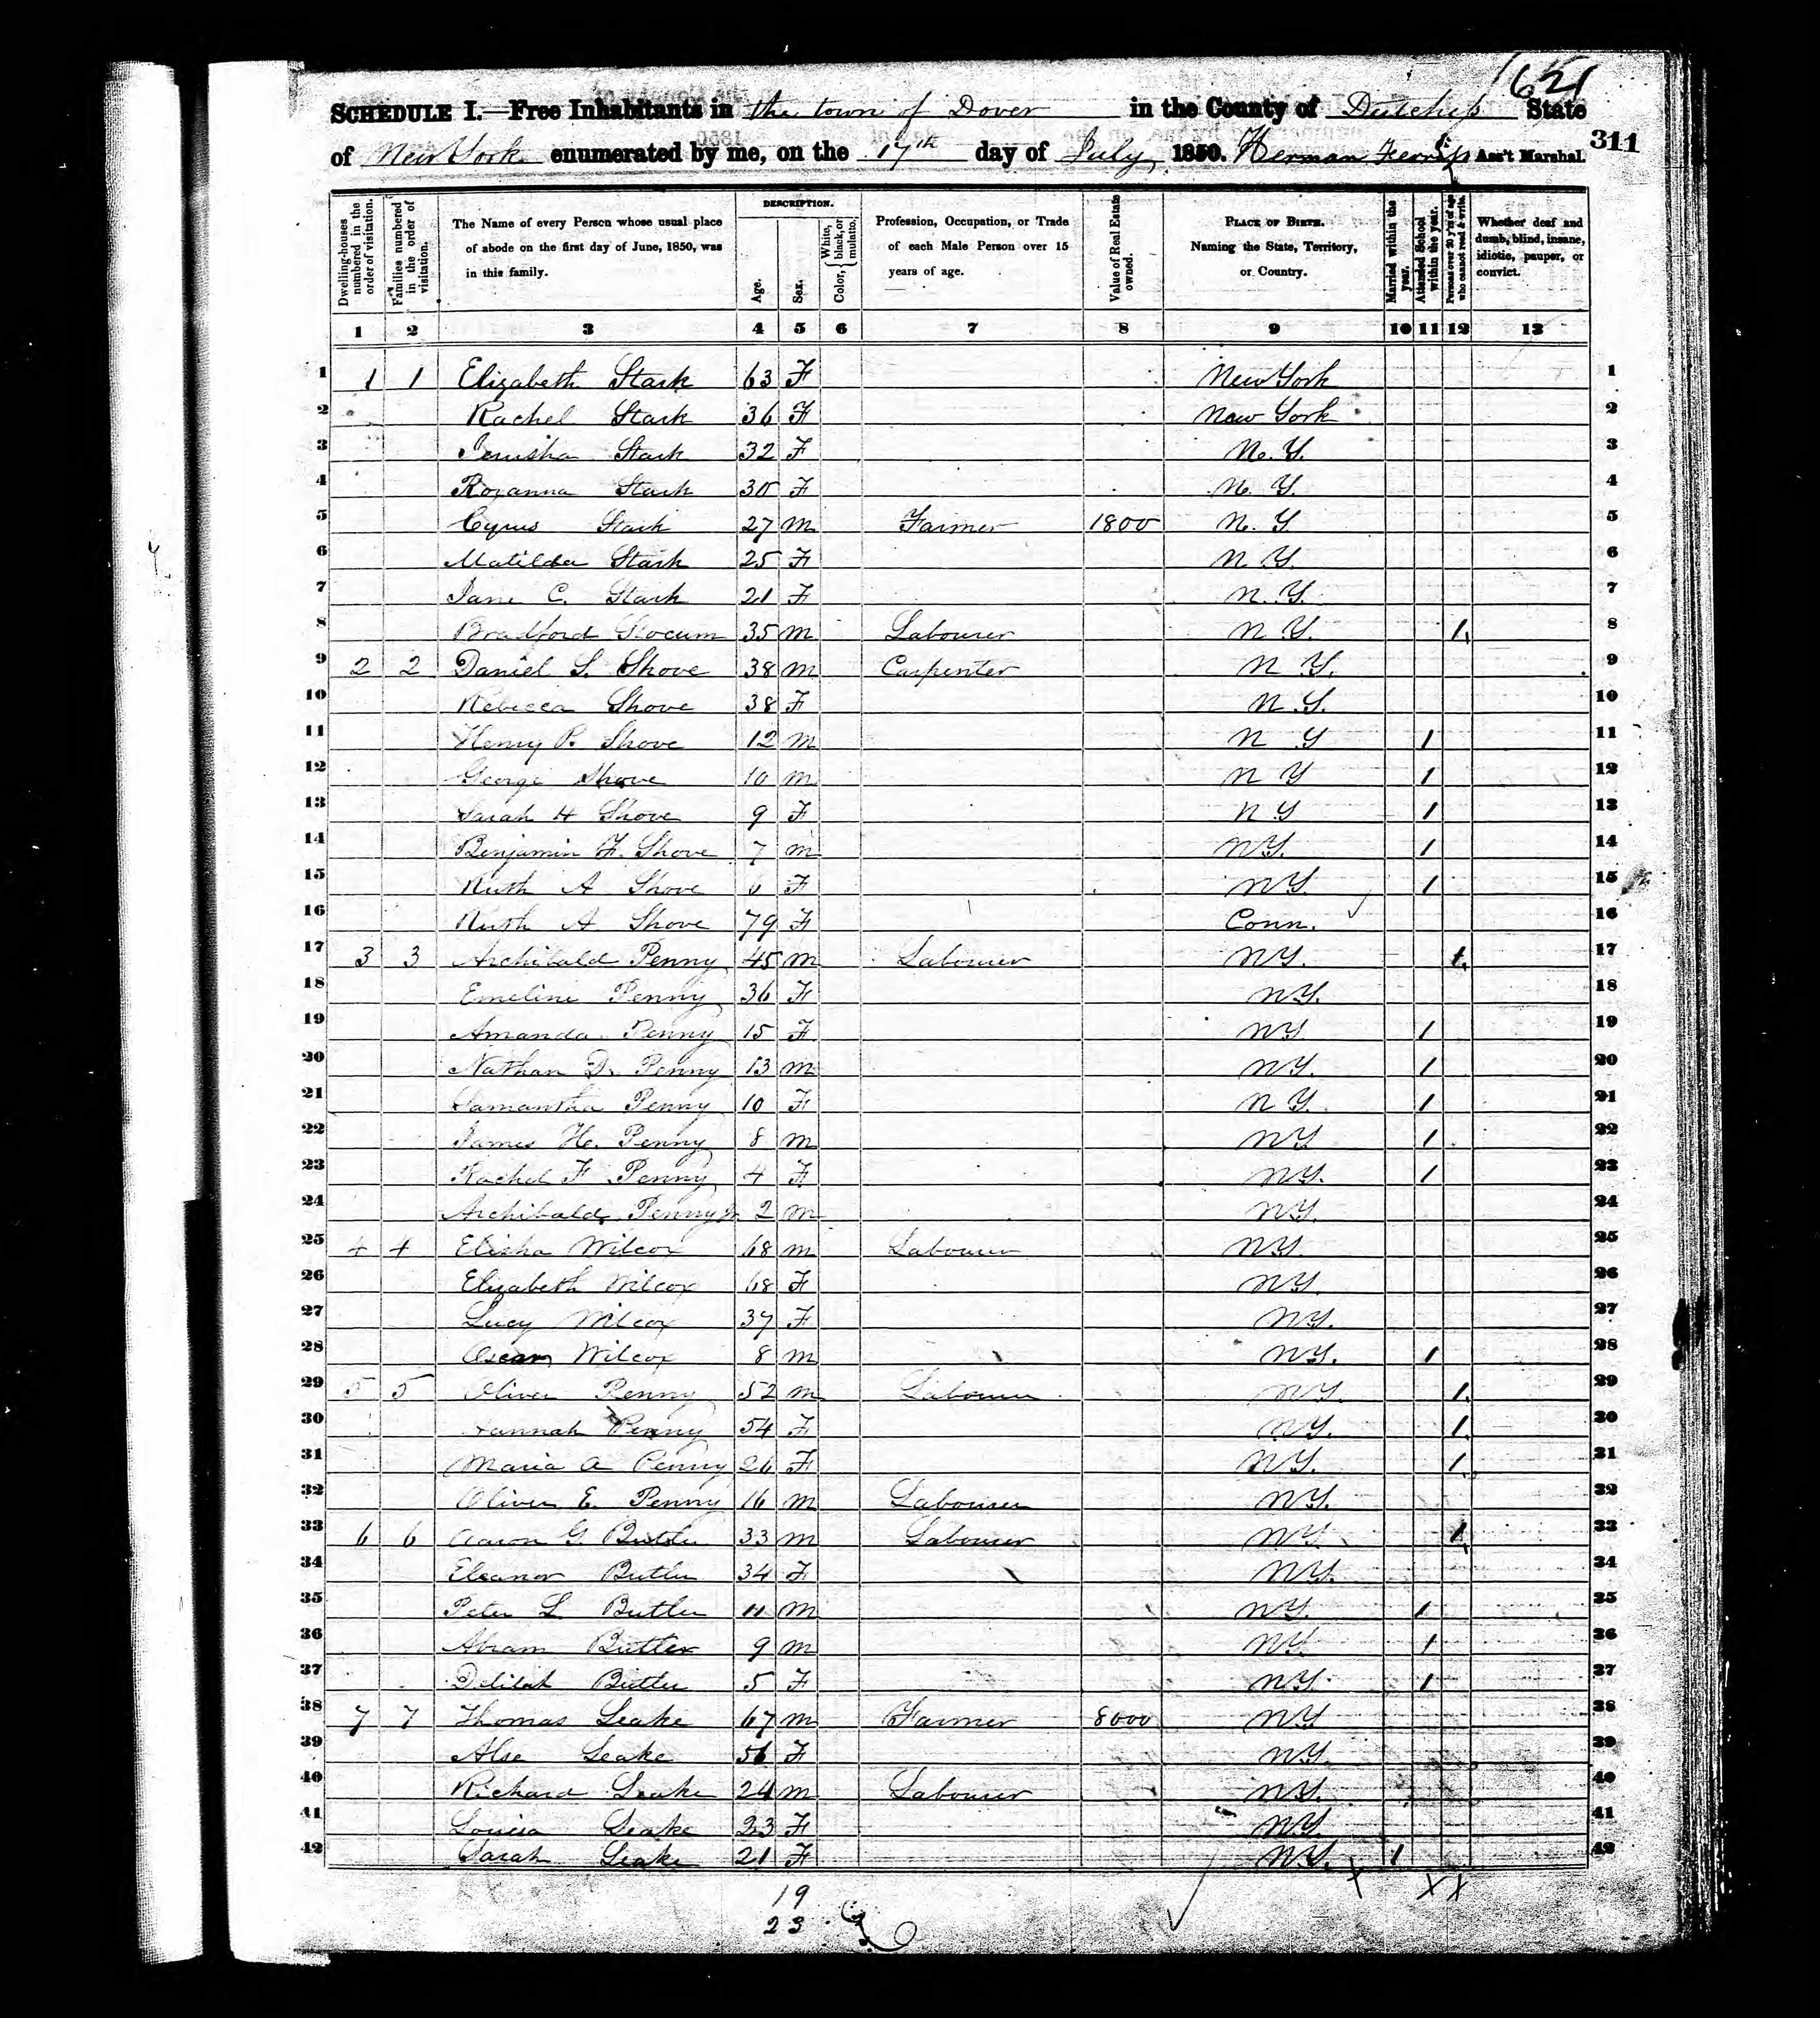 621
SCHEDULE I.—Free Inhabitants in the town of Dover in the County of Dutchess State
of New York enumerated by me, on the 17th day of July 1850. Herman Ass't Marshal. 311
Dwelling-houses numbered in the order of visitation.
Families numbered in the order of visitation.
The Name of every Person whose usual place of abode on the first day of June, 1850, was in this family.
DESCRIPTION.
Age.
Sex.
Color, { White, black, or mulatto.
Profession, Occupation, or Trade of each Male Person over 15 years of age.
Value of Real Estate owned.
PLACE OF BIRTH. Naming the State, Territory, or Country.
Married within the year.
Attended School within the year.
Persons over 20 y'rs of age who cannot read & write.
Whether deaf and dumb, blind, insane, idiotic, pauper, or convict.
1 2 3 4 5 6 7 8 9 10 11 12 13
1 1 1 Elizabeth Stark 63 F New York 1
2 Rachel Stark 36 F New York 2
3 Jerusha Stark 32 F N. Y. 3
4 Rozanna Stark 30 F N. Y. 4
5 Cyrus Stark 27 m Farmer 1800 N. Y 5
6 Matilda Stark 25 F N. Y. 6
7 Jane C. Stark 21 F N. Y. 7
8 Bradford Slocum 35 m Labourer N Y. 1 8
9 2 2 Daniel S. Shove 38 m Carpenter N Y. 9
10 Rebecca Shove 38 F N. Y. 10
11 Henry P. Shove 12 m N Y 1 11
12 George Shove 10 m N Y 1 12
13 Sarah H Shove 9 F N Y 1 13
14 Benjamin F. Shove 7 m NY. 1 14
15 Ruth A Shove 6 F NY. 1 15
16 Ruth A Shove 79 F Conn. 16
17 3 3 Archibald Penny 45 m Labourer NY. 1 17
18 Emeline Penny 36 F NY. 18
19 Amanda Penny 15 F NY 1 19
20 Nathan D. Penny 13 m NY. 1 20
21 Samantha Penny 10 F N Y. 1 21
22 James H. Penny 8 m NY 1 22
23 Rachel F Penny 4 F NY. 1 23
24 Archibald Penny Jr. 2 m NY. 24
25 4 4 Elisha Wilcox 68 m Labourer NY 25
26 Elizabeth Wilcox 68 F NY. 26
27 Lucy Wilcox 37 F NY. 27
28 Oscar Wilcox 8 m NY. 1 28
29 5 5 Oliver Penny 52 m Labourer NY. 1 29
30 Hannah Penny 54 F NY. 1 30
31 Maria A Penny 26 F NY. 1 31
32 Oliver E. Penny 16 m Labourer NY. 32
33 6 6 Aaron G. Butler 33 m Labourer NY 1 33
34 Eleanor Butler 34 F NY. 34
35 Peter L Butler 11 m NY. 1 35
36 Abram Butler 9 m NY. 1 36
37 Delilah Butler 5 F NY. 1 37
38 7 7 Thomas Leake 67 m Farmer 8000 NY 38
39 Alse Leake 56 F NY. 39
40 Richard Leake 24 m Labourer NY. 40
41 Louisa Leake 23 F NY. 41
42 Sarah Leake 21 F NY. 1 42
19
23